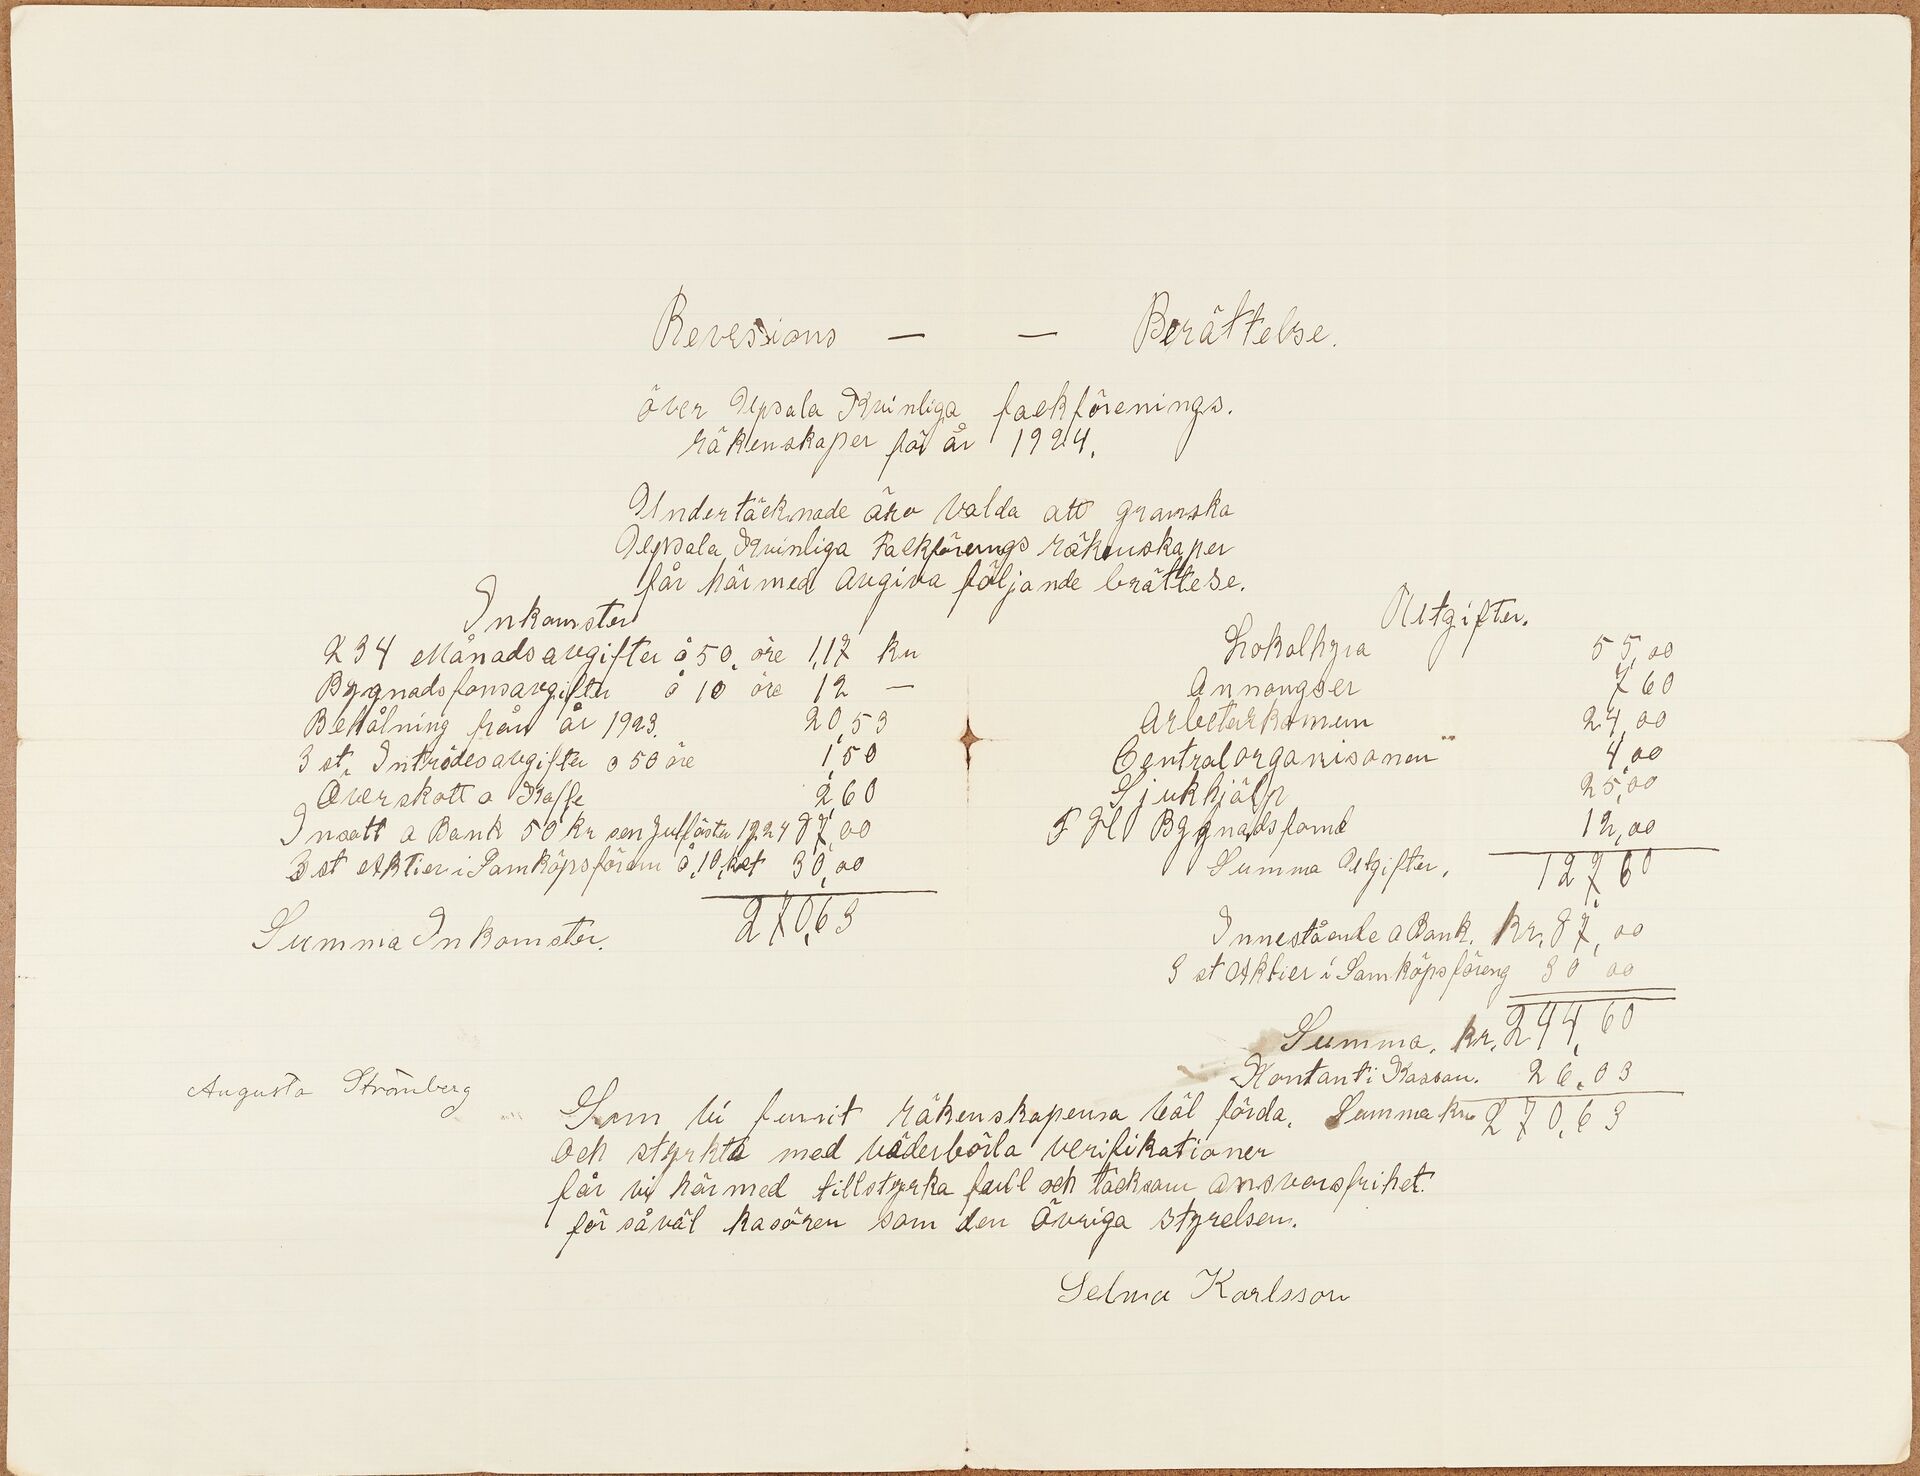 Revisions — — Berättelse.
över Upsala Kvinliga fackförenings.
räkenskaper för år 1924.
Undertäcknade äro valda att granska
Upsala Kvinliga Fackförengs räkenskaper
får härmed avgiva följande brättese.
Inkomster
234 Månadsavgifter å 50, öre 1,17 kr
Bygnadsfonsavgifter å 10 öre 12 —
Behålning från år 1923. 20,53
3 st, Inträdesavgifter a 50 öre 1,50
Överskott a Kaffe 2,60
Insatt a Bank 50 kr sen Julfästen 1924 87,00
3 st Aktier i Samköpsfören å, 10, 30,00
Summa Inkomster. 270,63
Utgifter.
Lokalhyra 55,00
Annongser 7 60
Arbetarkomun 24,00
Centralorganisonen 4,00
Sjukhjälp 25,00
Bygnadsfond 12,00
Summa Utgifter, 127,60
Innestående a Bank. kr, 87,00
3 st Aktier i Samköpsföreng 30 00
Summa, kr, 244,60
Kontant i Kassan. 26,03
Summa kr 270,63
Augusta Strömberg
Som vi funnit räkenskaperna väl förda,
och styrkta med väderbörla verifikationer
får vi härmed tillstyrka full och täcksam ansvarsfrihet.
för såväl kasören som den Övriga styrelsen.
Selma Karlsson